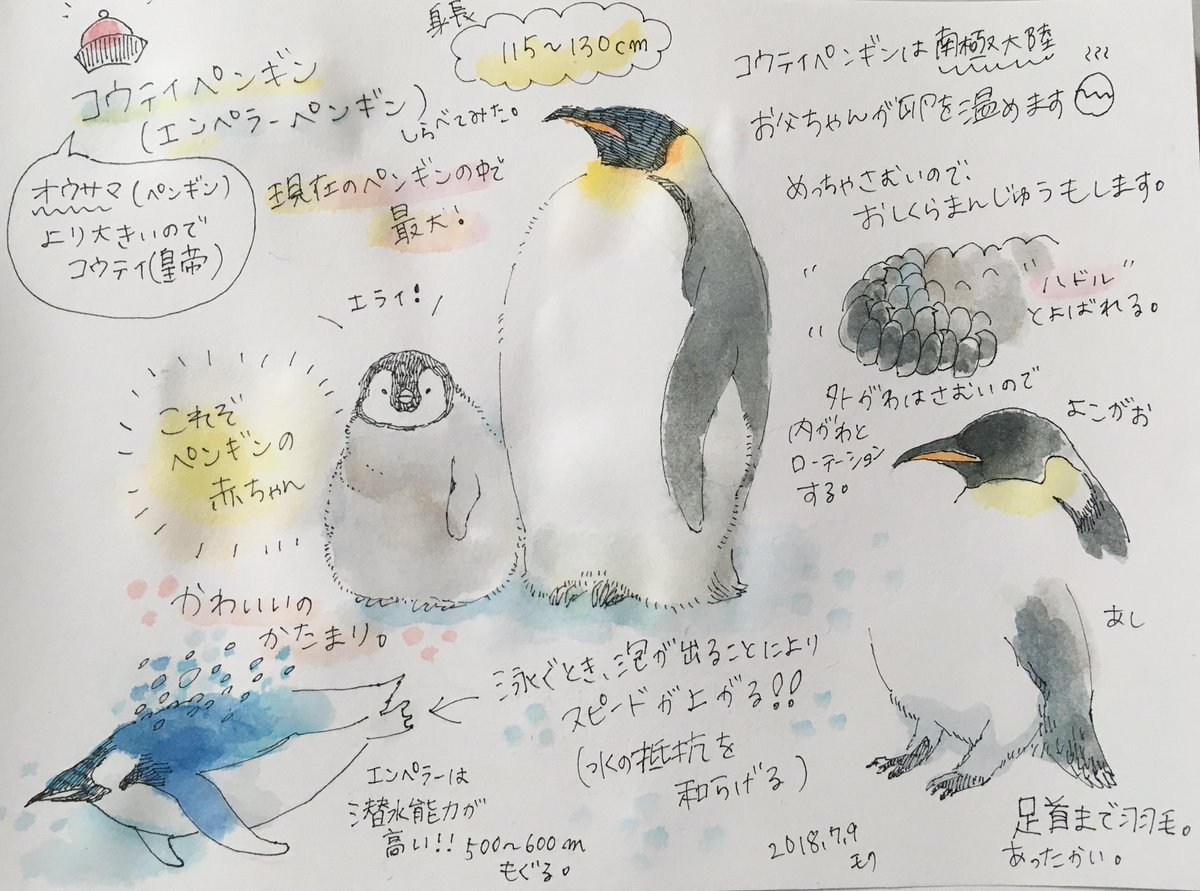 コウテイペンギン
(エンペラーペンギン)
しらべてみた。
オウサマ(ペンギン)
より大きいので
コウテイ(皇帝)
身長
115~130cm
現在のペンギンの中で
最大!
エライ!
これぞ
ペンギンの
赤ちゃん
かわいいの
かたまり。
コウテイペンギンは南極大陸
お父ちゃんが卵を温めます
めっちゃさむいので、
おしくらまんじゅうもします。
"ハドル"
とよばれる。
外がわはさむいので
内がわと
ローテーション
する。
よこがお
あし
足首まで羽毛。
あったかい。
泳ぐとき、泡が出ることにより
スピードが上がる!!
(水の抵抗を
和らげる)
エンペラーは
潜水能力が
高い!! 500~600m
もぐる。
2018.7.9
モク